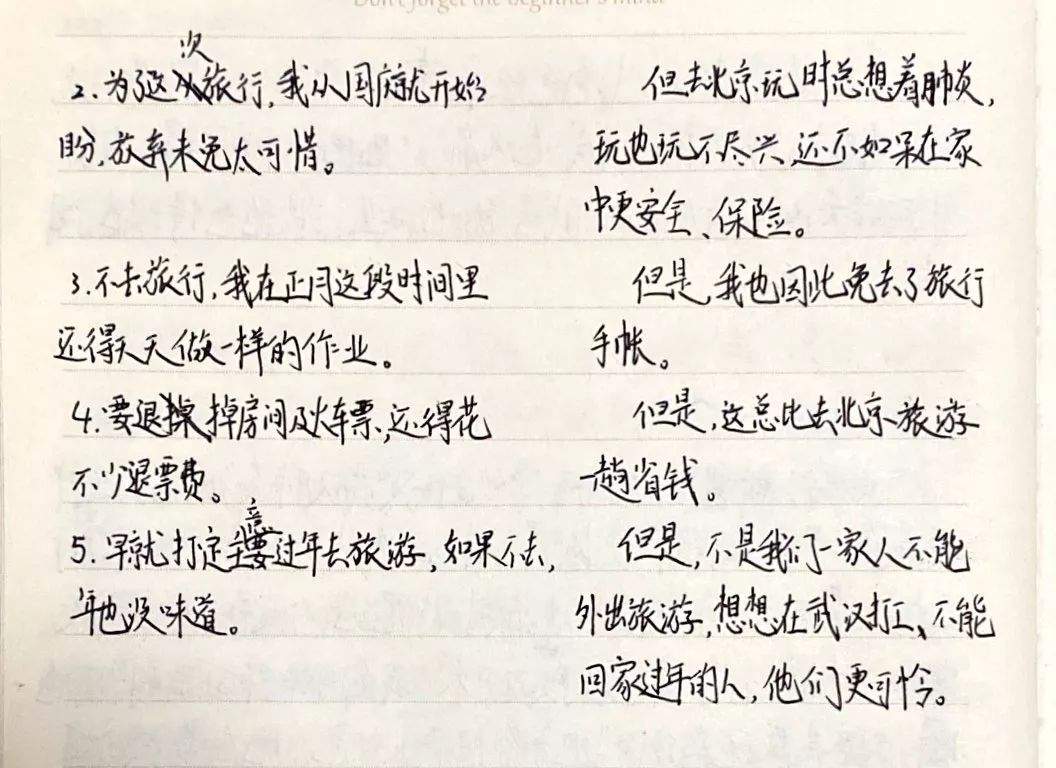 Don't forget the beginner's mind
2.为了这次旅行,我从国庆就开始
盼,放弃未免太可惜。
但去北京玩时总想着肺炎,
玩也玩不尽兴,还不如呆在家
中更安全、保险。
3.不去旅行,我在正月这段时间里
还得天天做一样的作业。
但是,我也因此免去了旅行
手帐。
4.要退掉房间及火车票,还得花
不少退票费。
但是,这总比去北京旅游
一趟省钱。
5.早就打定主意过年去旅游,如果不去,
年也没味道。
但是,不是我们一家人不能
外出旅游,想想在武汉打工、不能
回家过年的人,他们更可怜。